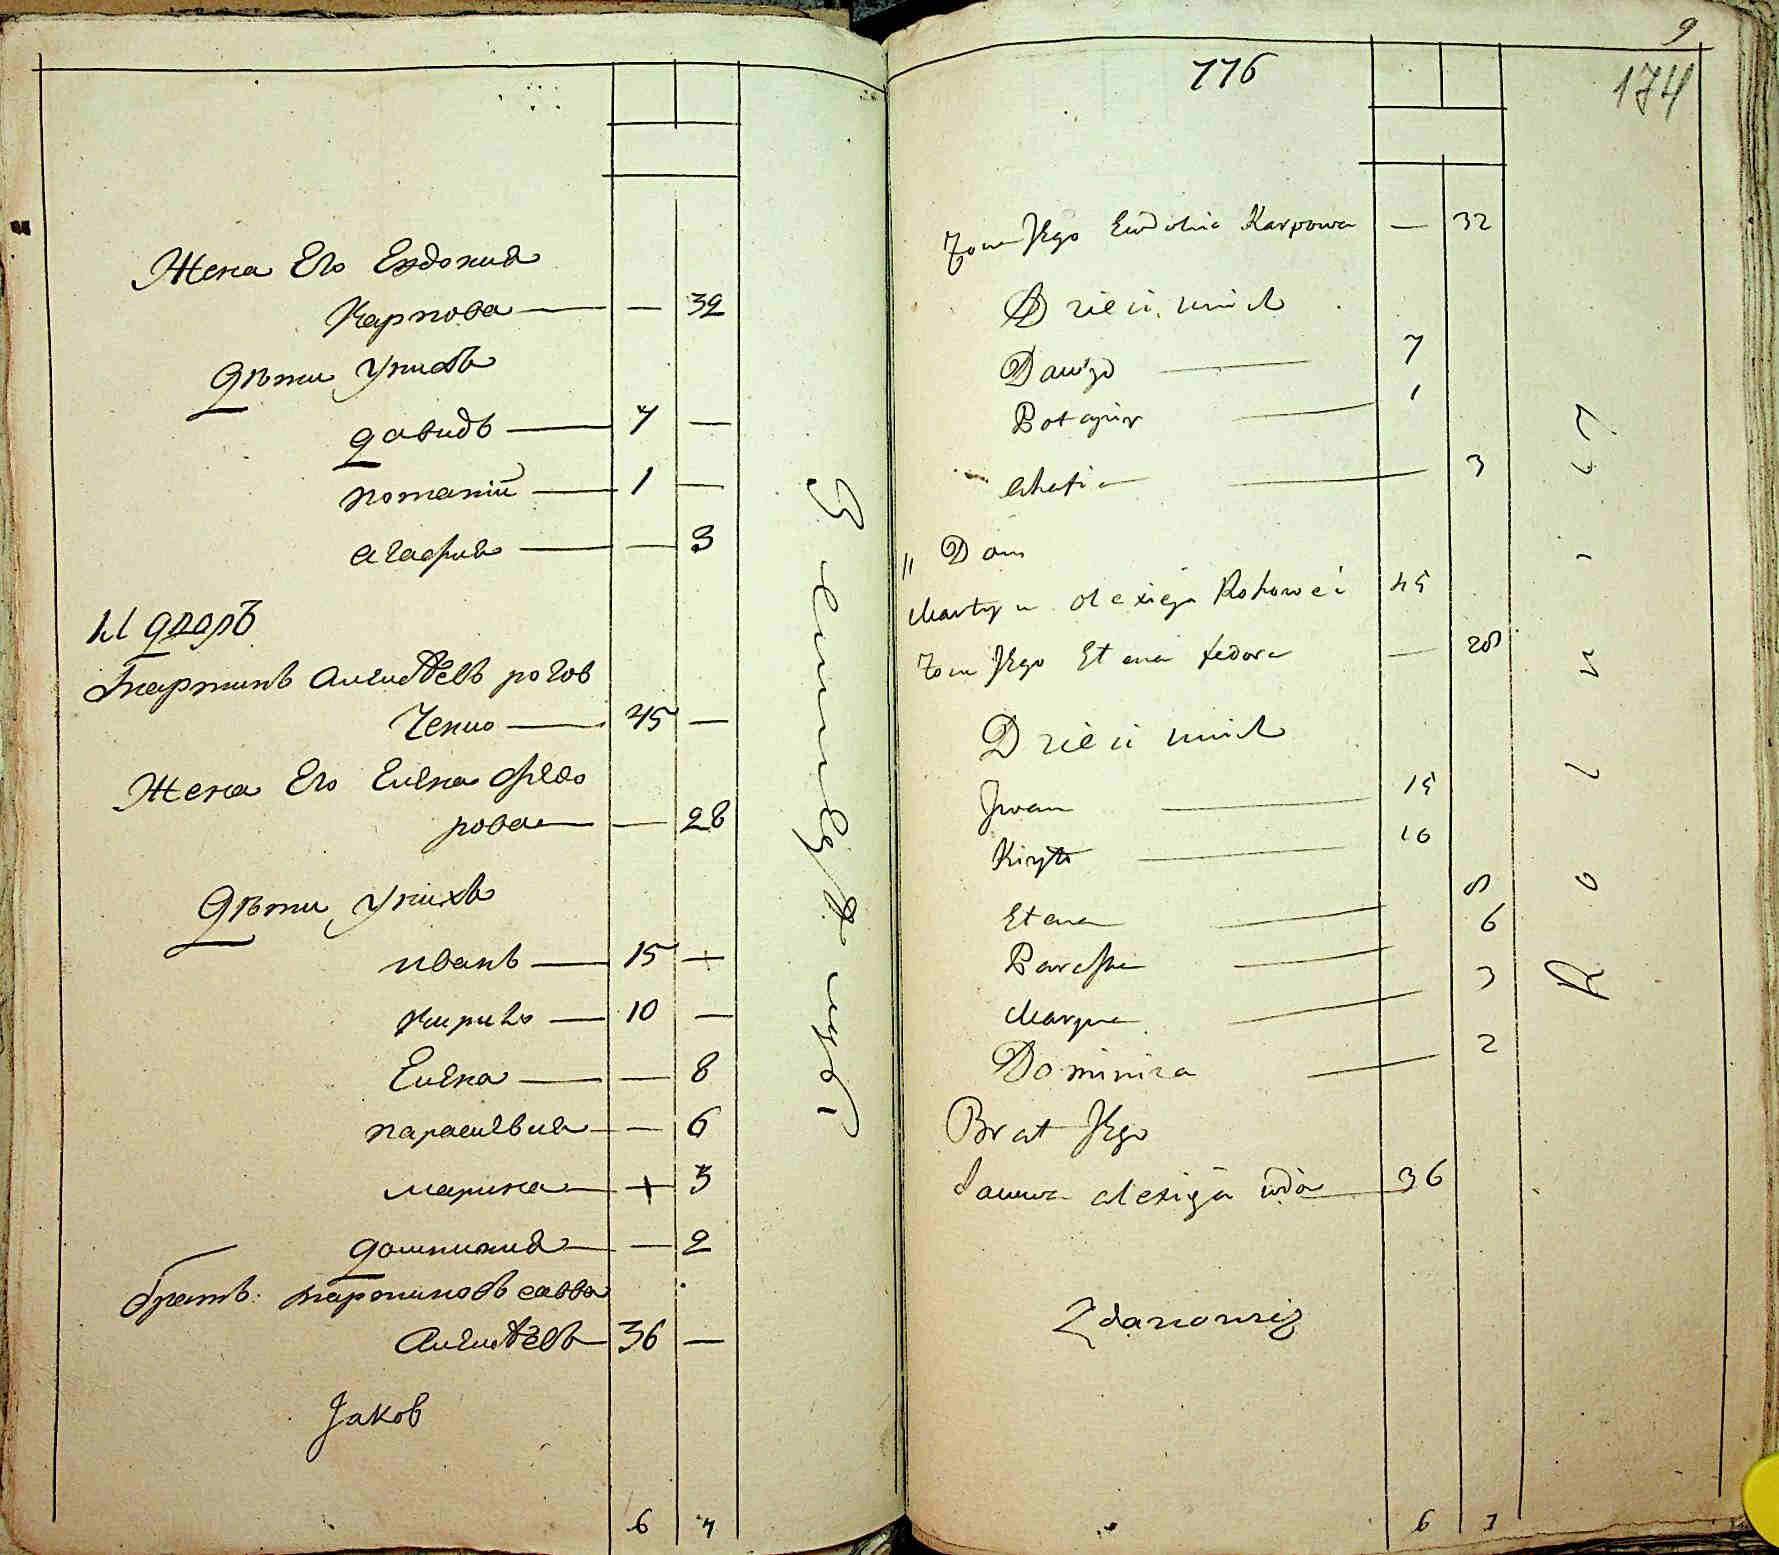 Жена Его Евдокия
Карпова — — 32
Дѣти Унихъ
Давидъ — 7 —
потапiй — 1 —
агафия — — 3
11 дворъ
Мартинъ Алексѣевъ рогов
ченко — 45 —
Жена Его Елена Федо
рова — — 28
Дѣти Унихъ
иванъ — 15 —
кирило — 10 —
Елена — — 8
параскевия — — 6
марина — — 3
домникия — — 2
братъ мартиновъ савва
Алексѣевъ — 36 —
Jаков
6 7
9
776
174
Zona Jego Ewdokia Karpowa — 32
Dzieci unich
Dawyd — 7
Potapiy — 1
Ahafia — 3
11 Dom
Martyn Alexieja Rohowci 45
Zona Jego Elena fedora — 28
Dzieci unich
Jwan — 15
Kiryło — 10
Elena — 8
Paraska — 6
Maryna — 3
Dominika — 2
Brat Jego
Sawwa Alexieja wda 36
Zdanowicz
6 7